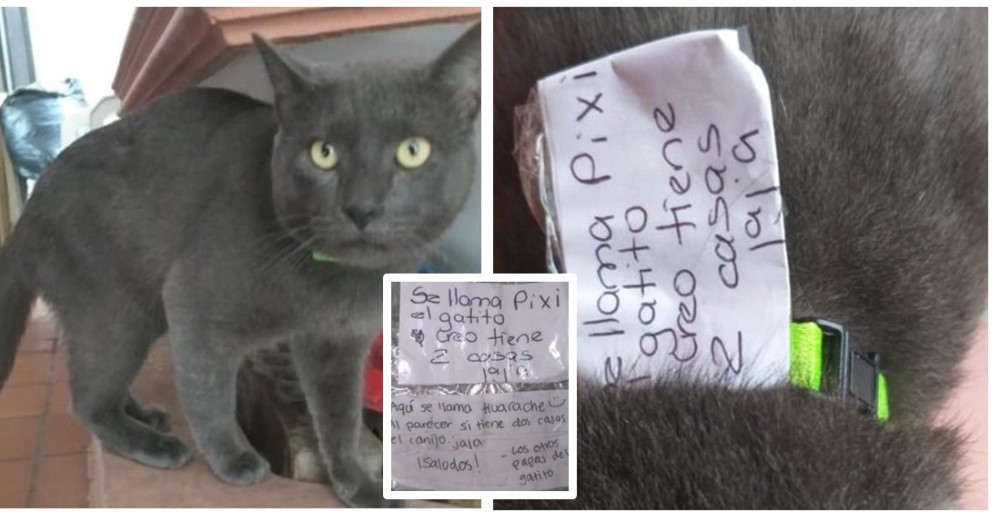 Se llama Pixi
el gatito
creo tiene
2 casas
jaja
Aquí se llama Huarache
Al parecer si tiene dos casas
el canijo jaja
¡Saludos!
- Los otros
papas del
gatito
e llama Pixi
gatito
creo tiene
2 casas
jaja